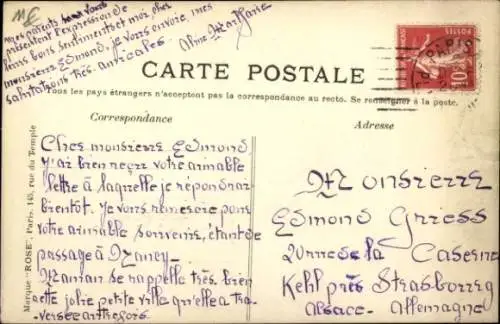 mes parents pour vous
présentent l'expression de
leurs bons sentiments et moi, cher
monsieur Edmond, je vous envoie, mes
salutations très-amicales.
CARTE POSTALE
Tous les pays étrangers n'acceptent pas la correspondance au recto. Se renseigner à la poste.
Correspondance
Adresse
Marque "ROSE", Paris, 145, rue du Temple
PARIS
POSTES
10
Cher monsieur Edmond
J'ai bien reçu votre aimable
lettre à laquelle je répondrai
bientôt. Je vous remercie pour
votre aimable souvenir, étant de
passage à Nancy
Maman se rappelle très-bien
cette jolie petite ville qu'elle a tra-
versée autrefois.
Monsieur
Edmond Griess
rue de la Caserne
Kehl près Strasbourg
Alsace - Allemagne